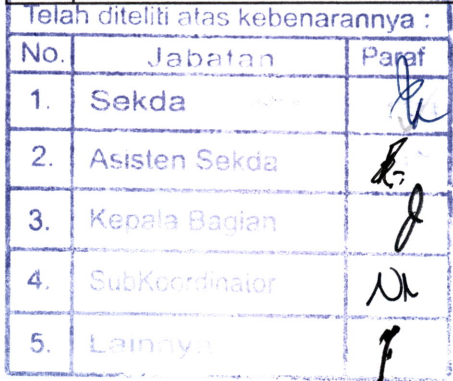 Telah diteliti atas kebenarannya :
No. Jabatan Paraf
1. Sekda
2. Asisten Sekda
3. Kepala Bagian
4. SubKoordinator
5. Lainnya